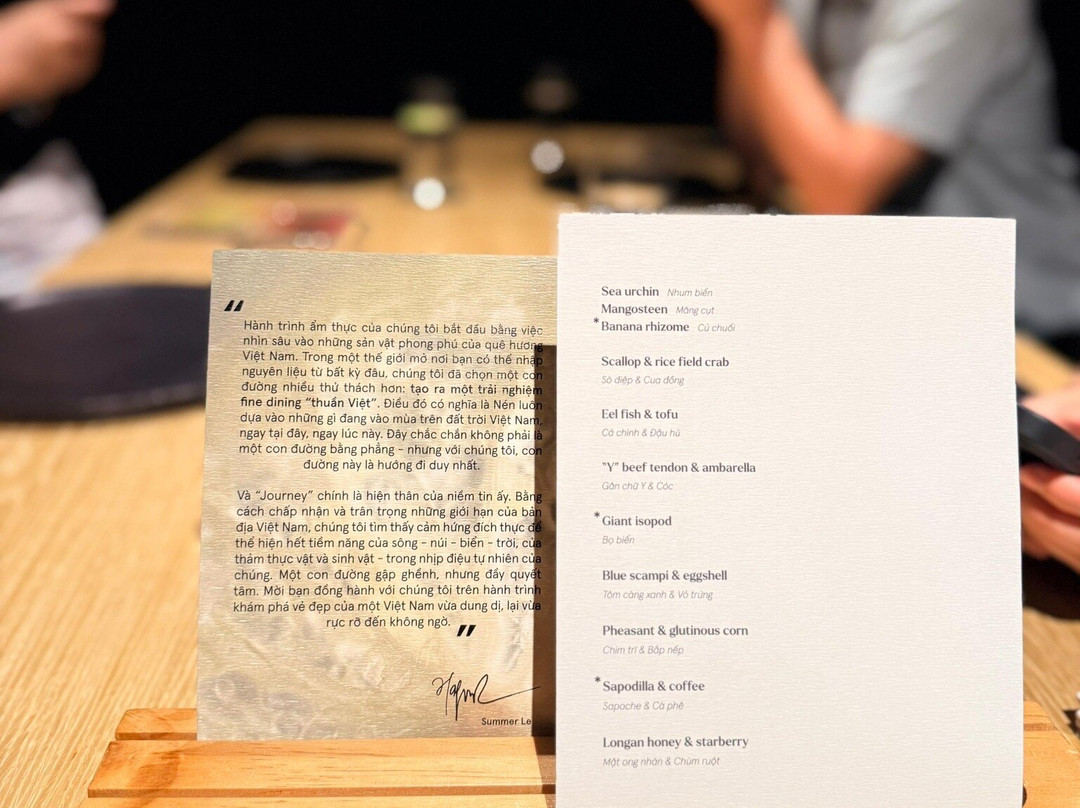 “
Hành trình ẩm thực của chúng tôi bắt đầu bằng việc
nhìn sâu vào những sản vật phong phú của quê hương
Việt Nam. Trong một thế giới mở nơi bạn có thể nhập
nguyên liệu từ bất kỳ đâu, chúng tôi đã chọn một con
đường nhiều thử thách hơn: tạo ra một trải nghiệm
fine dining “thuần Việt”. Điều đó có nghĩa là Nén luôn
dựa vào những gì đang vào mùa trên đất trời Việt Nam,
ngay tại đây, ngay lúc này. Đây chắc chắn không phải là
một con đường bằng phẳng - nhưng với chúng tôi, con
đường này là hướng đi duy nhất.
Và “Journey” chính là hiện thân của niềm tin ấy. Bằng
cách chấp nhận và trân trọng những giới hạn của bản
địa Việt Nam, chúng tôi tìm thấy cảm hứng đích thực để
thể hiện hết tiềm năng của sông - núi - biển - trời, của
thảm thực vật và sinh vật - trong nhịp điệu tự nhiên của
chúng. Một con đường gập ghềnh, nhưng đầy quyết
tâm. Mời bạn đồng hành với chúng tôi trên hành trình
khám phá vẻ đẹp của một Việt Nam vừa dung dị, lại vừa
rực rỡ đến không ngờ.
”
Summer Le
Sea urchin Nhum biển
Mangosteen Măng cụt
*Banana rhizome Củ chuối
Scallop & rice field crab
Sò điệp & Cua đồng
Eel fish & tofu
Cá chình & Đậu hũ
“Y” beef tendon & ambarella
Gân chữ Y & Cóc
*Giant isopod
Bọ biển
Blue scampi & eggshell
Tôm càng xanh & Vỏ trứng
Pheasant & glutinous corn
Chim trĩ & Bắp nếp
*Sapodilla & coffee
Sapoche & Cà phê
Longan honey & starberry
Mật ong nhãn & Chùm ruột